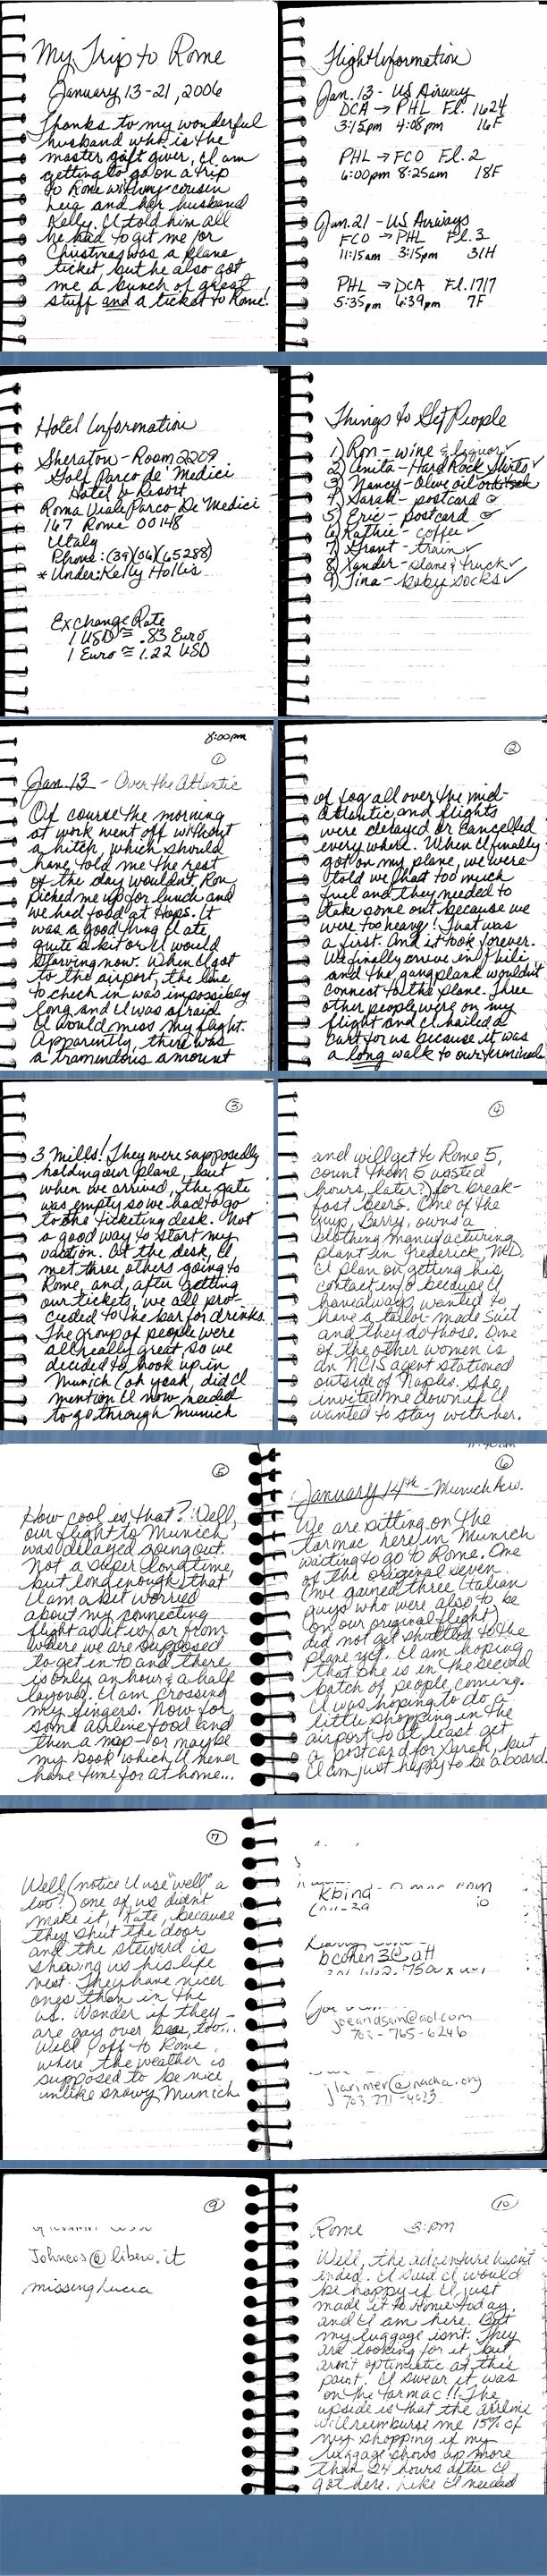 My Trip to Rome
January 13-21, 2006
Thanks to my wonderful
husband who is the
master gift giver, I am
getting to go on a trip
to Rome with my cousin
and her husband
Kelly. I told him all
he had to get me for
Christmas was a plane
ticket, but he also got
me a bunch of great
stuff and a ticket to Rome!
Flight Information
Jan. 13 - US Airway
DCA → PHL Fl. 1624
3:15pm 4:08pm 16F
PHL → FCO Fl. 2
6:00pm 8:25am 18F
Jan. 21 - US Airways
FCO → PHL Fl. 3
11:15am 3:15pm 31H
PHL → DCA Fl. 1717
5:35pm 6:39pm 7F
Hotel Information
Sheraton - Room 2209
Golf Parco de' Medici
Hotel & Resort
Roma Viale Parco De' Medici
167 Rome 00148
Italy
Phone: (39)(06)(65288)
* Under: Kelly Hollis
Exchange Rate
1 USD ≅ .83 Euro
1 Euro ≅ 1.22 USD
Things to Get People
1) Ron - wine & liquor ✓
2) Anita - Hard Rock Shirts ✓
3) Nancy - Olive oil
4) Sarah - postcard
5) Eric - postcard
6) Kathie - coffee ✓
7) Grant - train ✓
8) Xander - plane & truck ✓
9) Tina - baby socks ✓
8:00pm
①
Jan. 13 - Over the Atlantic
Of course the morning
at work went off without
a hitch, which should
have told me the rest
of the day wouldn't. Ron
picked me up for lunch and
we had food at Hops. It
was a good thing I ate
quite a bit or I would
starving now. When I got
to the airport, the line
to check in was impossibly
long and I was afraid
I would miss my flight.
Apparently, there was
a tramendous amount
②
of fog all over the mid-
Atlantic and flights
were delayed or cancelled
everywhere. When I finally
got on my plane, we were
told we had too much
fuel and they needed to
take some out because we
were too heavy! That was
a first. And it took forever.
We finally arrive in Phili
and the gangplank wouldn't
connect to the plane. Three
other people were on my
flight and I hailed a
cart for us because it was
a long walk to our terminal
③
3 mills! They were supposedly
holding our plane, but
when we arrived, the gate
was empty so we had to go
to the ticketing desk. Not
a good way to start my
vaction. At the desk, I
met three others going to
Rome, and, after getting
our tickets, we all pro-
ceeded to the bar for drinks.
The group of people were
all really great, so we
decided to hook up in
Munich (oh yeah, did I
mention I now needed
to go through Munich
④
and will get to Rome 5,
count them 5 wasted
hours, later?) for break-
fast beers. One of the
guys, Barry, owns a
clothing manufacturing
plant in Frederick, MD.
I plan on getting his
contact info because I
have always wanted to
have a tailor-made suit
and they do those. One
of the other women is
an NCIS agent stationed
outside of Naples. She
invited me down if I
wanted to stay with her.
⑤
How cool is that? Well,
our flight to Munich
was delayed going out.
Not a super long time,
but long enough that
I am a bit worried
about my connecting
flight as it is far from
where we are supposed
to get in to and there
is only an hour & a half
layover. I am crossing
my fingers. Now for
some airline food and
then a nap - or maybe
my book which I never
have time for at home...
⑥
January 14th - Munich
We are sitting on the
tarmac here in Munich
waiting to go to Rome. One
of the original seven
(we gained three Italian
guys who were also to be
on our original flight)
did not get shuttled to the
plane yet. I am hoping
that she is in the second
batch of people coming.
I was hoping to do a
little shopping in the
airport to at least get
a postcard for Sarah, but
I am just happy to be aboard.
⑦
Well (notice I use "well" a
lot?) one of us didn't
make it, Kate, because
they shut the door
and the steward is
showing us his life
vest. They have nicer
ones than in the
US. Wonder if they
are gay over too...
Well, off to Rome
where the weather is
supposed to be nice
unlike snowy Munich.
kbind
bcohen3@att
joeandsam@aol.com
703-765-6246
jlarimer@nacha.org
703-771-4023
⑨
Johncos@libero.it
missing Lucia
⑩
Rome 3:pm
Well, the adventure hasn't
ended. I said I would
be happy if I just
made it to Rome today,
and I am here. But
my luggage isn't. They
are looking for it, but
aren't optimistic at this
point. I swear it was
on the tarmac!! The
upside is that the airline
will reimburse me 15% of
my shopping if my
luggage shows up more
than 24 hours after I
got here. Like I needed